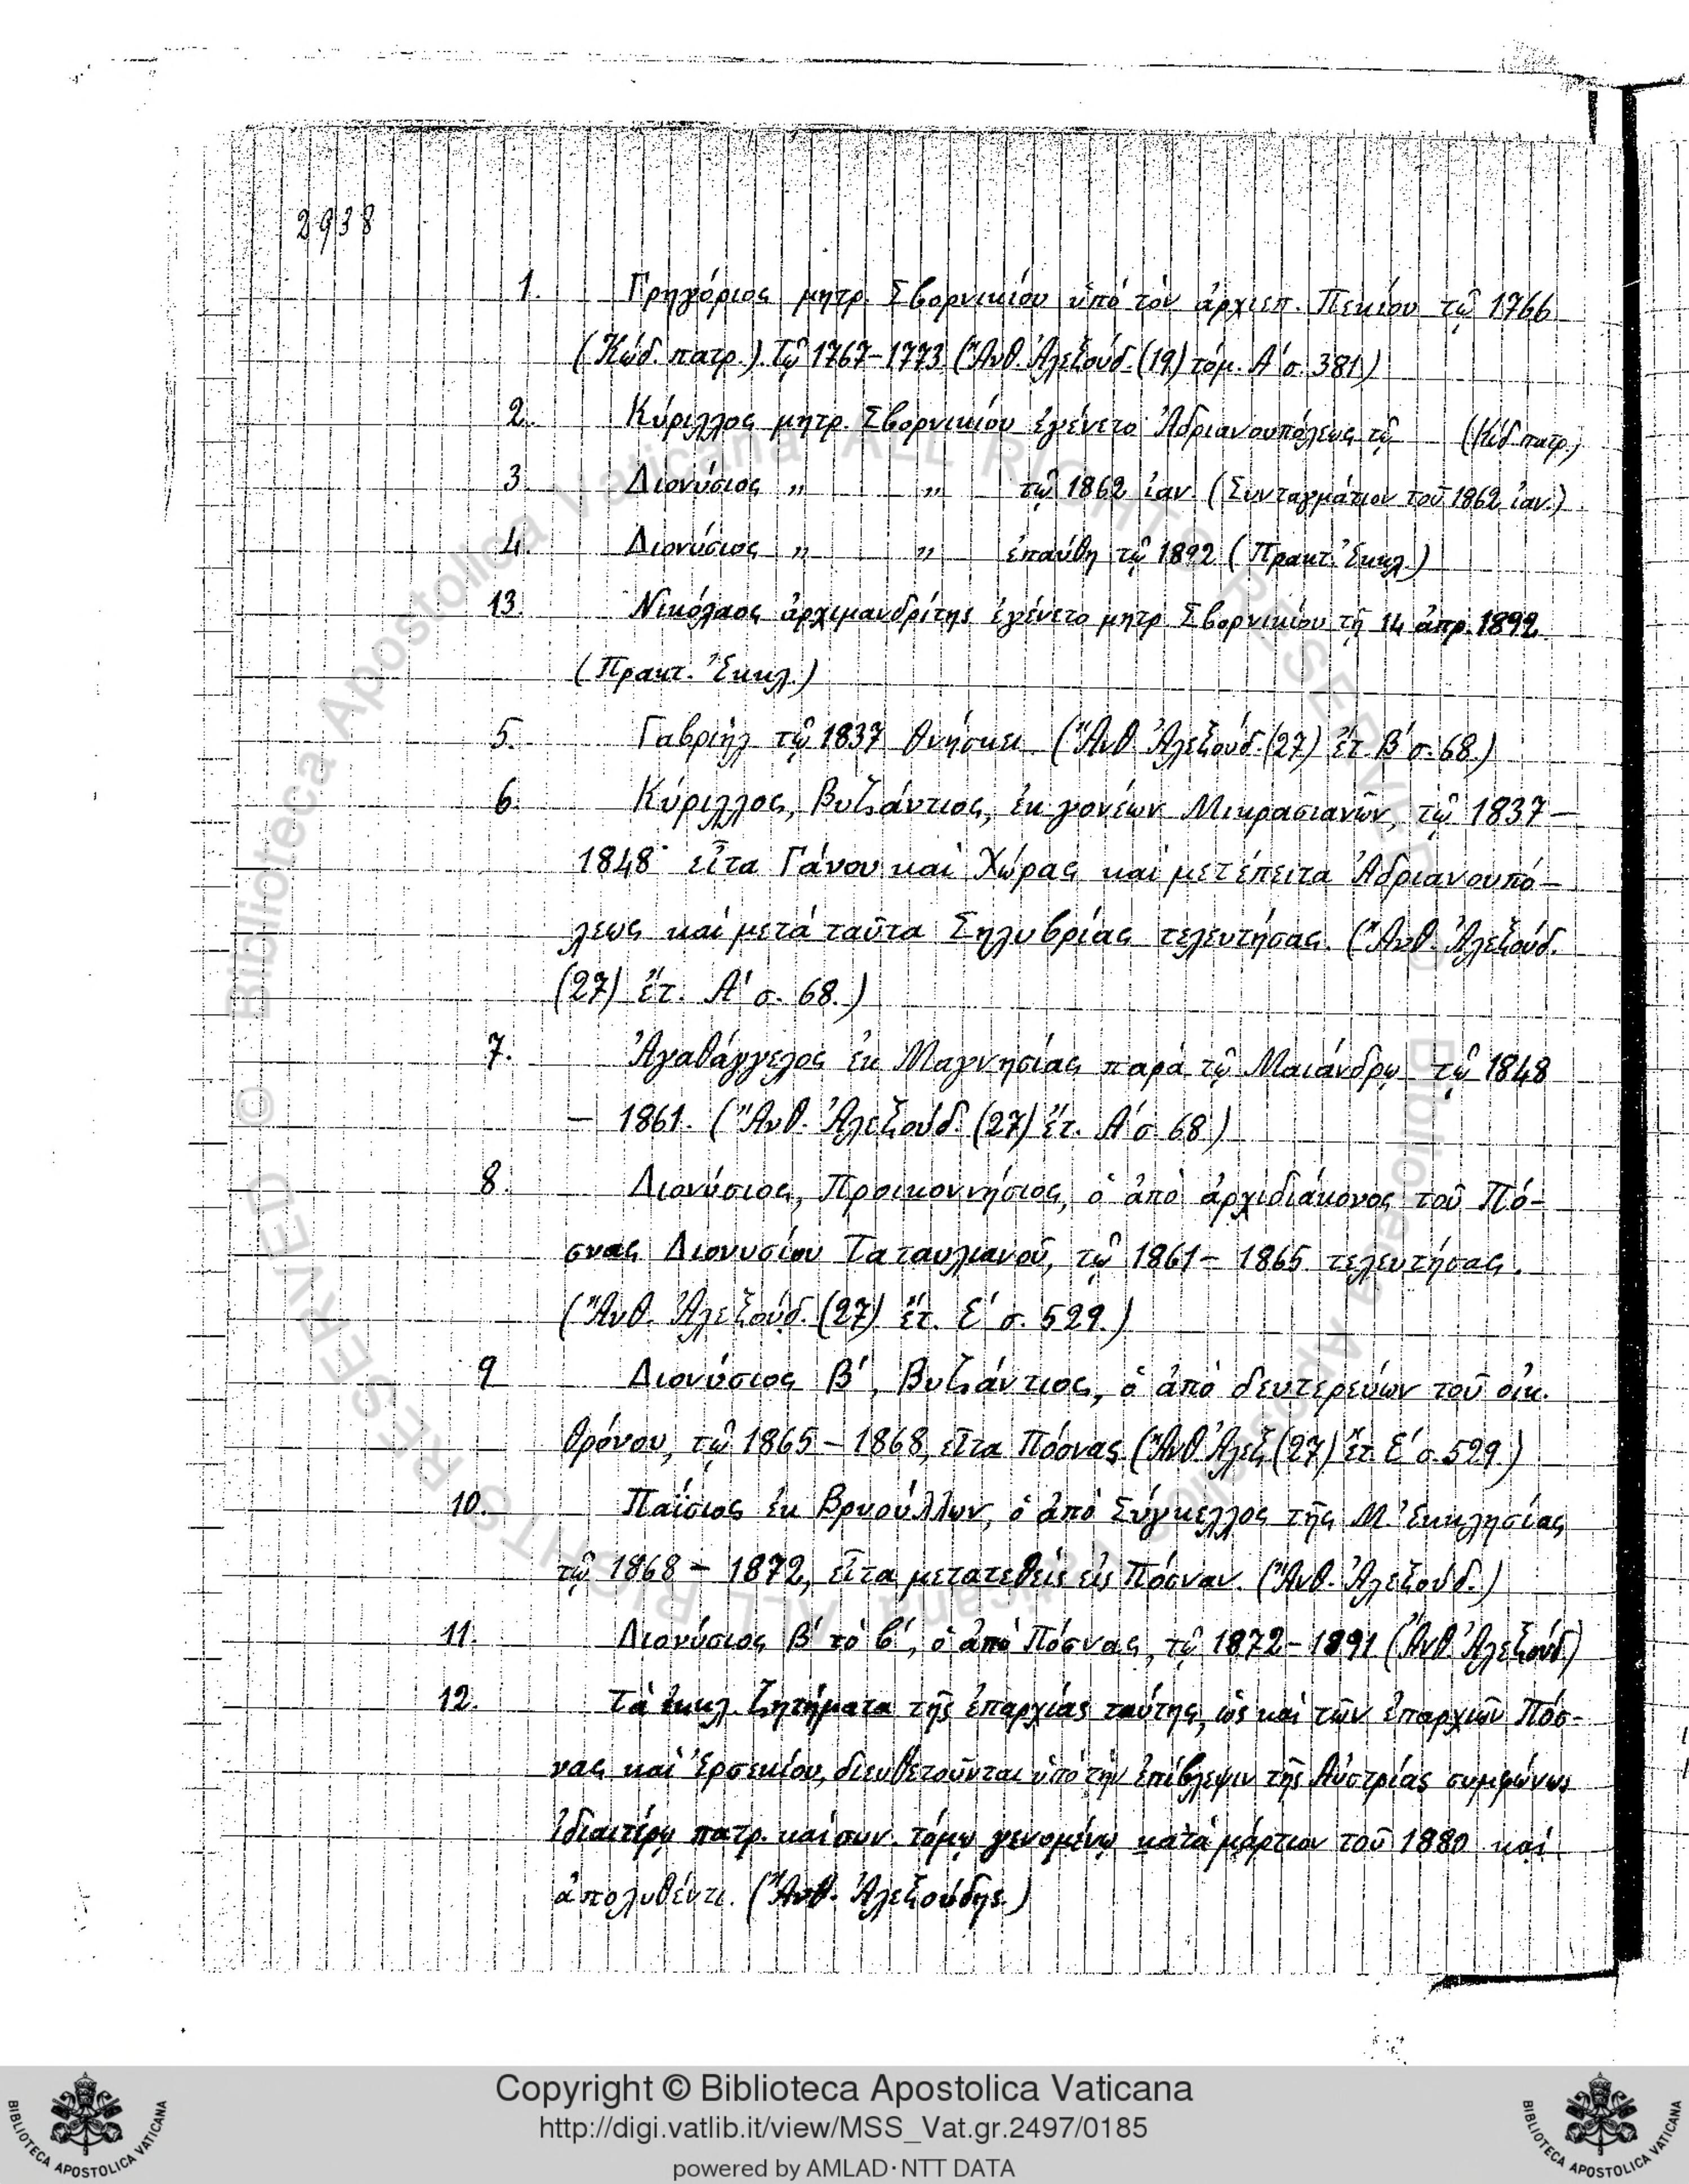 2938
1. Γρηγόριος μητρ. Σβορνικίου ὑπό τόν ἀρχιεπ. Πεκίου τῷ 1766
(Κώδ. πατρ.). Τῷ 1767-1773. (Ἄνθ. Ἀλεξούδ. (19) τόμ. Α΄ σ. 381)
2. Κύριλλος μητρ. Σβορνικίου ἐγένετο Ἀδριανουπόλεως τῷ (Κώδ. πατρ.)
3. Διονύσιος „ „ τῷ 1862 ἰαν. (Συνταγμάτιον τοῦ 1862 ἰαν.)
4. Διονύσιος „ „ ἐπαύθη τῷ 1892 (Πρακτ. Ἐκκλ.)
13. Νικόλαος ἀρχιμανδρίτης ἐγένετο μητρ. Σβορνικίου τῇ 14 ἀπρ. 1892
(Πρακτ. Ἐκκλ.)
5. Γαβριήλ τῷ 1837 θνήσκει (Ἄνθ. Ἀλεξούδ. (27) ἔτ. Β΄ σ. 68.)
6. Κύριλλος, Βυζάντιος, ἐκ γονέων Μικρασιανῶν, τῷ 1837 –
1848· εἶτα Γάνου καί Χώρας καί μετέπειτα Ἀδριανουπό-
λεως καί μετά ταῦτα Σηλυβρίας τελευτήσας. (Ἄνθ. Ἀλεξούδ.
(27) ἔτ. Α΄ σ. 68.)
7. Ἀγαθάγγελος ἐκ Μαγνησίας παρά τῷ Μαιάνδρῳ τῷ 1848
– 1861. (Ἄνθ. Ἀλεξούδ. (27) ἔτ. Α΄ σ. 68)
8. Διονύσιος, Προικοννήσιος, ὁ ἀπό ἀρχιδιάκονος τοῦ Πό-
σνας Διονυσίου Ταταυλιανοῦ, τῷ 1861 – 1865 τελευτήσας.
(Ἄνθ. Ἀλεξούδ. (27) ἔτ. Ε΄ σ. 529.)
9 Διονύσιος Β΄, Βυζάντιος, ὁ ἀπό δευτερεύων τοῦ οἰκ.
θρόνου, τῷ 1865 – 1868, εἶτα Πόσνας (Ἄνθ. Ἀλεξ. (27) ἔτ. Ε΄ σ. 529.)
10. Παΐσιος ἐκ Βρυούλλων, ὁ ἀπό Σύγκελλος τῆς Μ. Ἐκκλησίας
τῷ 1868 – 1872, εἶτα μετατεθείς εἰς Πόσναν. (Ἄνθ. Ἀλεξούδ.)
11. Διονύσιος Β΄ τό β΄, ὁ ἀπό Πόσνας, τῷ 1872 – 1891 (Ἄνθ. Ἀλεξούδ)
12. Τά ἐκκλ. ζητήματα τῆς ἐπαρχίας ταύτης, ὡς καί τῶν ἐπαρχιῶν Πόσ-
νας καί Ἐρσεκίου, διευθετοῦνται ὑπό τήν ἐπίβλεψιν τῆς Αὐστρίας συμφώνως
ἰδιαιτέρῳ πατρ. καί συν. τόμῳ γενομένῳ κατά μάρτιον τοῦ 1880 καί
ἀπολυθέντι. (Ἄνθ. Ἀλεξούδης.)
Copyright © Biblioteca Apostolica Vaticana
http://digi.vatlib.it/view/MSS_Vat.gr.2497/0185
powered by AMLAD·NTT DATA
BIBLIOTECA APOSTOLICA VATICANA
BIBLIOTECA APOSTOLICA VATICANA
© Biblioteca Apostolica Vaticana ALL RIGHTS RESERVED
© Biblioteca Apostolica Vaticana ALL RIGHTS RESERVED